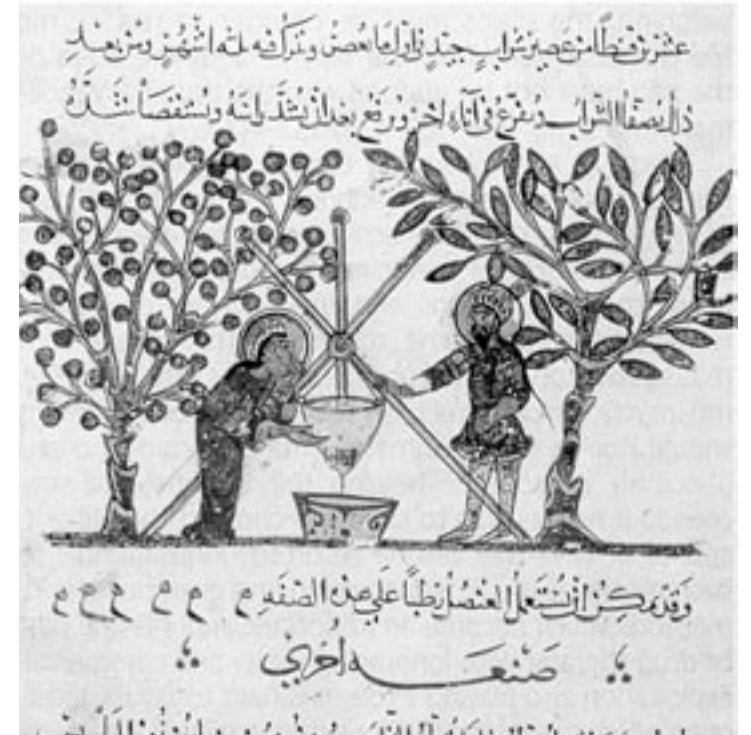 عشرين قسطًا من عصير شرابٍ جيدٍ في اول ما يعصر ويترك فيه ثلثه اشهرٍ ومن بعد
ذلك يصفا الشراب ويفرغ في اناءٍ اخر ويرفع بعد ان يشد راسه ويستقصا شده
وقد يمكن ان يستعمل العنصل رطبًا على هذه الصفه م م م م م
صنعه اخري